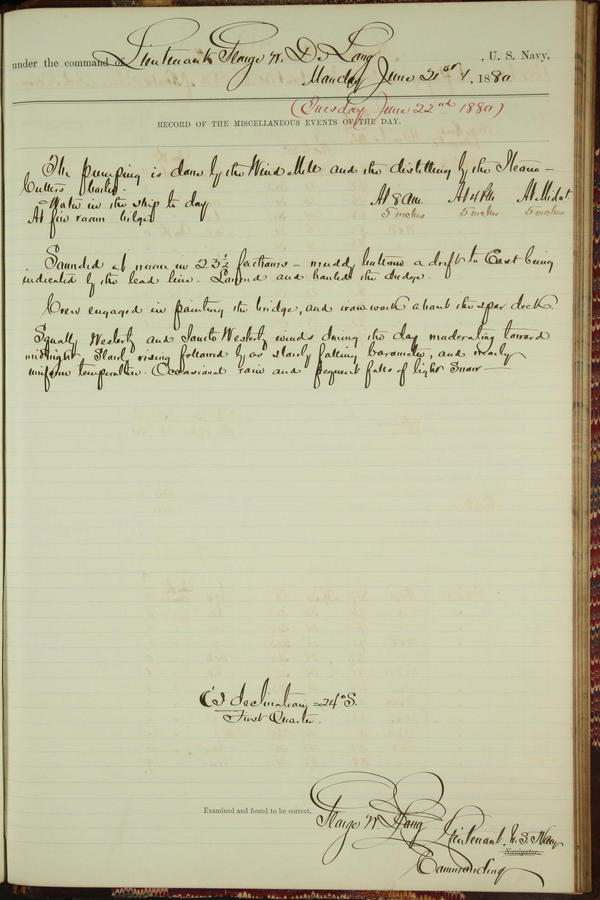 under the command of Lieutenant George W. De Long, U. S. Navy,
Monday June 21st, 1880
(Tuesday June 22nd 1880)
RECORD OF THE MISCELLANEOUS EVENTS OF THE DAY.
The pumping is done by the Wind Mill and the distilling by the Steam-
Cutters boiler.
Water in the ship to day At 8 am. At 4 PM At Midnt.
At fire room bilge 5 inches 5 inches 5 inches
Sounded at noon in 23½ fathoms - muddy bottom a drift to East being
indicated by the lead line. Lowered and hauled the dredge.
Crew engaged in painting the bridge, and iron work about the spar deck.
Squally Westerly and Souto Westerly winds during the day moderating toward
midnight. Slowly rising followed by as slowly falling barometer, and nearly
uniform temperature. Occasional rain and frequent falls of light Snow -
declination = 24° S.
First Quarter.
Examined and found to be correct.
George W. De Long Lieutenant, U. S. Navy
Navigator.
Commanding